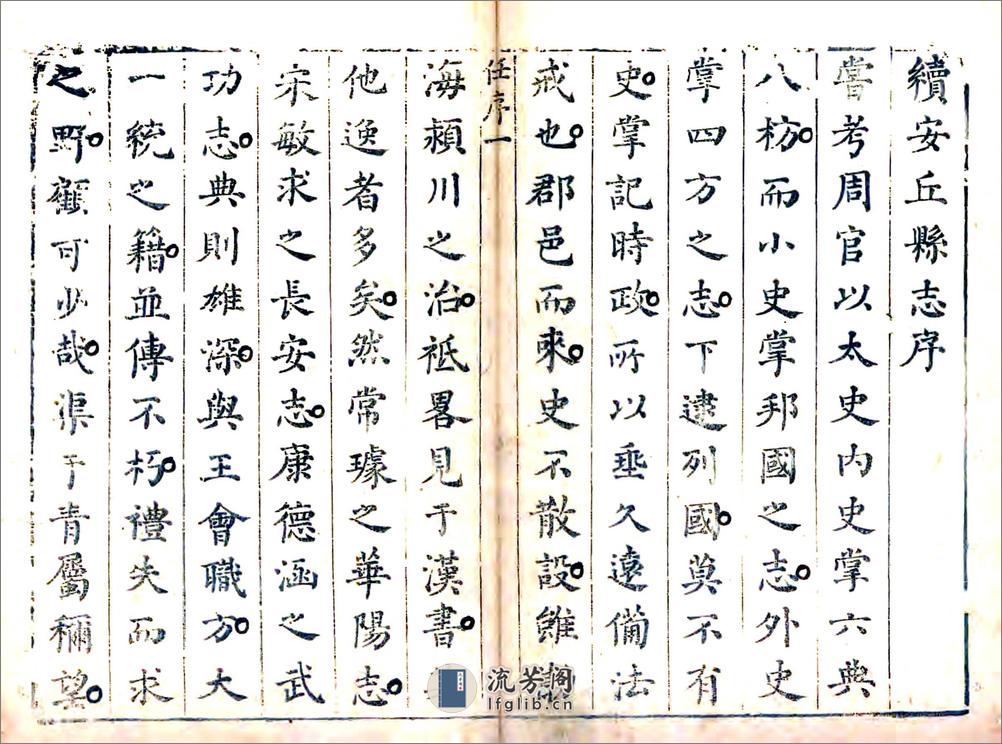 續安丘縣志序
嘗考周官以太史內史掌六典
八枋。而小史掌邦國之志。外史
掌四方之志。下逮列國。莫不有
史。掌記時政。所以垂久遠備法
戒也。郡邑而來。史不散設。雖
任序一
海頴川之治。祗畧見于漢書。
他逸者多矣。然常璩之華陽志。
宋敏求之長安志。康德涵之武
功志。典則雄深。與王會職方。大
一統之籍。並傳不朽。禮失而求
之野。顧可少哉。渠于青屬穪望。
流芳閣
lfglib.cn